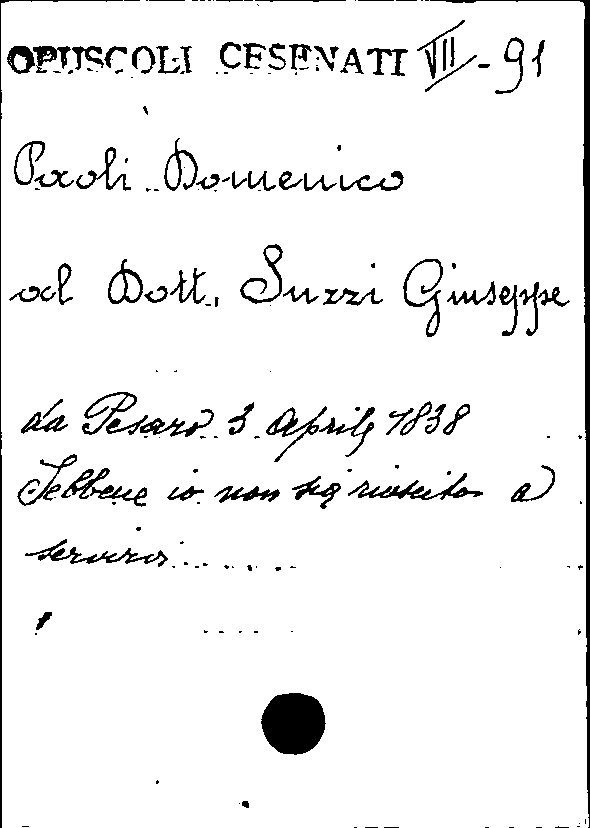 OPUSCOLI CESENATI VII - 91
Paoli Domenico
al Dott. Suzzi Giuseppe
da Pesaro 3 Aprile 1838
Sebbene io non sia riuscito a
servirvi......